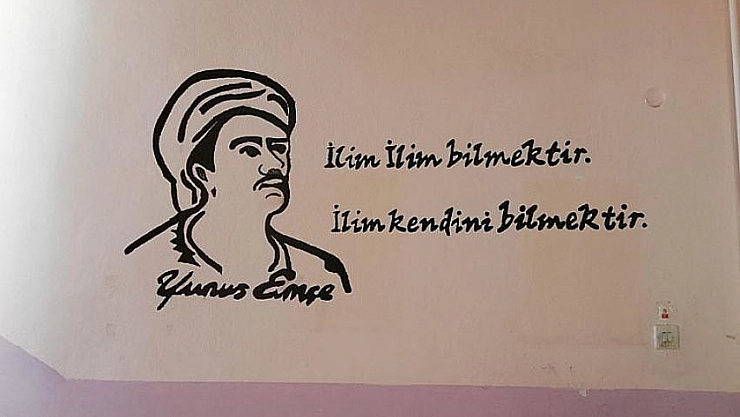 İlim İlim bilmektir.
İlim kendini bilmektir.
Yunus Emçe